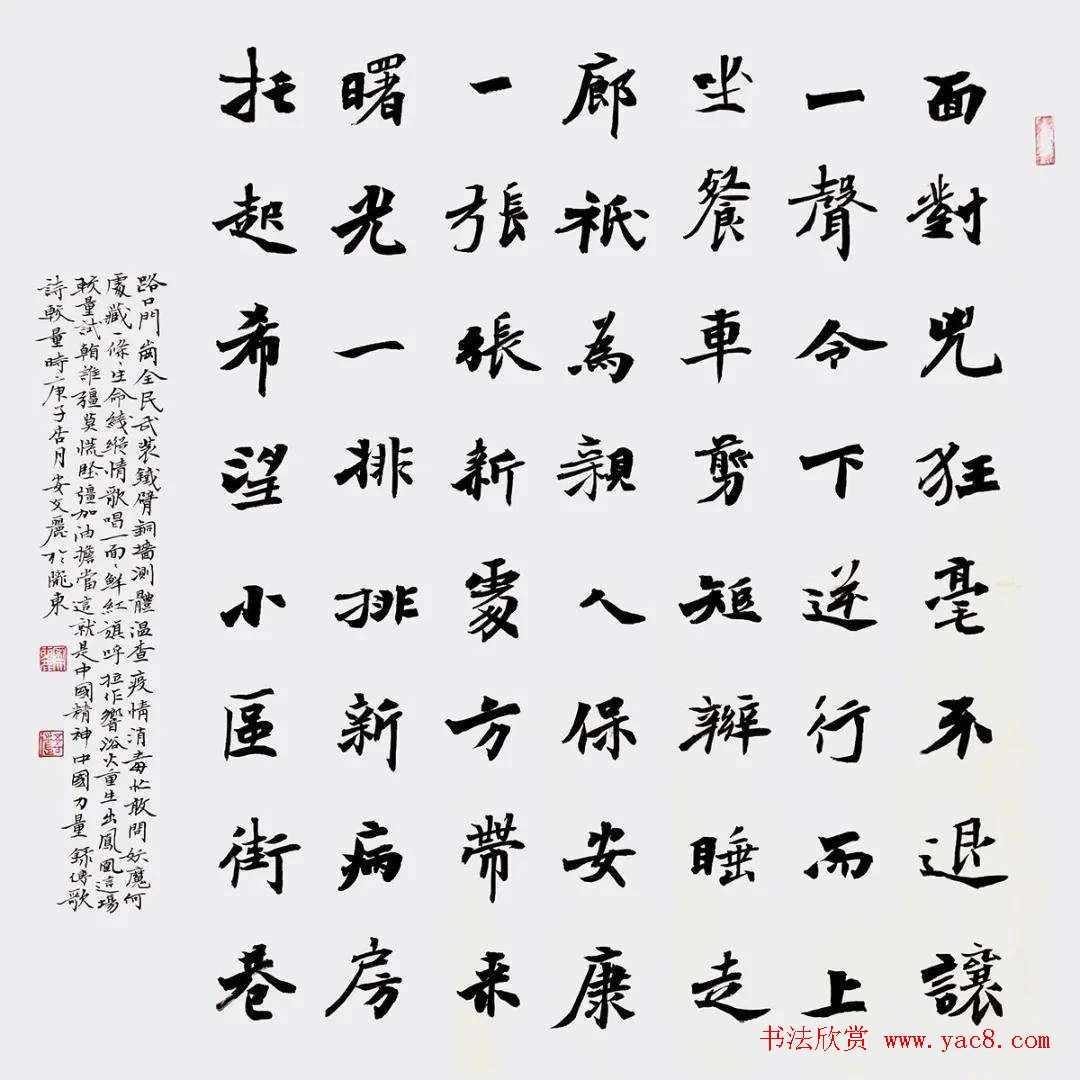 面對兇狂毫不退讓
一聲令下逆行而上
唑餐車剪短辮睡走
廊祇為親人保安康
一張張新處方帶来
曙光一排排新病房
托起希望小區街巷
路口門崗全民武装鐵臂銅墙測體温查疫情消毒忙敢問妖魔何
處藏一條〻生命綫縱情歌唱一面〻鮮紅旗呼拉作響浴火重生出鳳凰這場
較量試翰誰彊莫慌堅彊加油擔當這就是中國精神中國力量録傳歌
詩較量時庚子杏月安文麗於隴東
书法欣赏 www.yac8.com